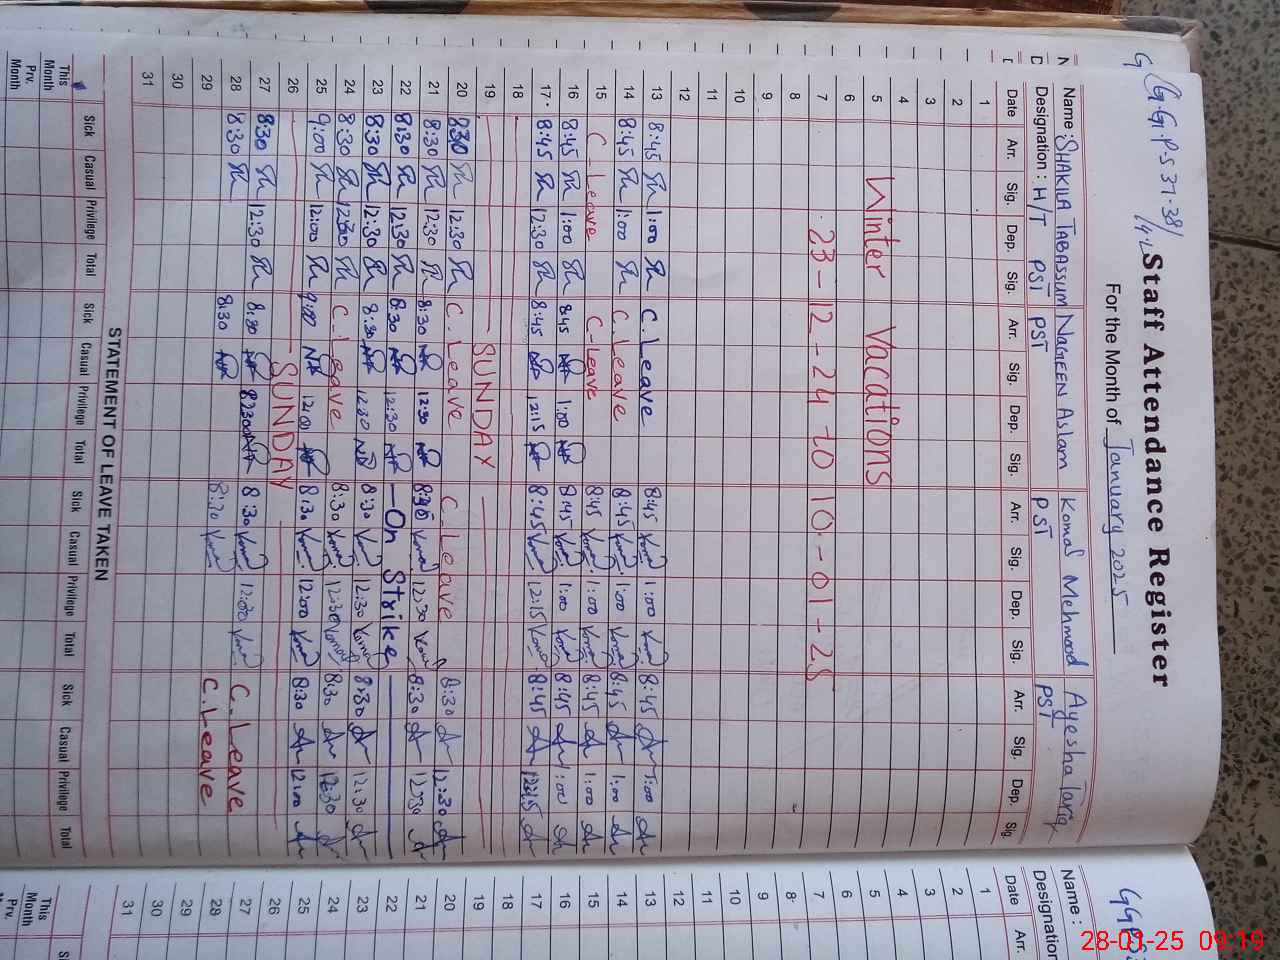 G.G.P.S 37-38/14.L Staff Attendance Register
For the Month of January 2025
Name : SHAKILA TABASSUM Nageen Aslam Komal Mehmood Ayesha Tariq
Designation : H/T PST PST PST PST
Date Arr. Sig. Dep. Sig. Arr. Sig. Dep. Sig. Arr. Sig. Dep. Sig. Arr. Sig. Dep. Sig.
1
2
3
4
5 Winter Vacations
6
7 23-12-24 to 10-01-25
8
9
10
11
12
13 8:45 1:00 C.Leave 8:45 Komal 1:00 Komal 8:45 1:00
14 8:45 1:00 C.Leave 8:45 Komal 1:00 Komal 8:45 1:00
15 C-Leave C-Leave 8:45 Komal 1:00 Komal 8:45 1:00
16 8:45 1:00 8:45 1:00 8:45 Komal 1:00 Komal 8:45 1:00
17 8:45 12:30 8:45 12:15 8:45 Komal 12:15 Komal 8:45 12:15
18
19 SUNDAY
20 8:30 12:30 C.Leave C.Leave 8:30 12:30
21 8:30 12:30 8:30 12:30 8:30 Komal 12:30 Komal 8:30 12:30
22 8:30 12:30 8:30 12:30 — On Strike —
23 8:30 12:30 8:30 12:30 8:30 Komal 12:30 Komal 8:30 12:30
24 8:30 12:30 C.Leave 8:30 Komal 12:30 Komal 8:30 12:30
25 9:00 12:00 9:00 12:00 8:30 Komal 12:00 Komal 8:30 12:00
26 SUNDAY
27 8:30 12:30 8:30 8:30 Komal 12:30 Komal C.Leave
28 8:30 8:30 8:30 Komal C.Leave
29
30
31
STATEMENT OF LEAVE TAKEN
Sick Casual Privilege Total Sick Casual Privilege Total Sick Casual Privilege Total Sick Casual Privilege Total
This Month
Prv. Month
Name :
Designation
Date Arr.
1
2
3
4
5
6
7
8
9
10
11
12
13
14
15
16
17
18
19
20
21
22
23
24
25
26
27
28
29
30
31
This Month
Prv.
28-01-25 09:19